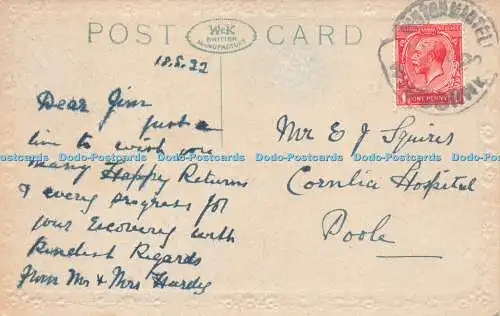 POST CARD
W&K
BRITISH
MANUFACTURE
18.8.22
Dear Jim
just a
line to wish you
Many Happy Returns
& every progress for
your Recovery with
Kindest Regards
from Mr & Mrs Hardy
Mr E J Squires
Cornelia Hospital
Poole
ONE PENNY
Dodo-Postcards Dodo-Postcards Dodo-Postcards Dodo-Postcards Dodo-Postcards Dodo-Postcards